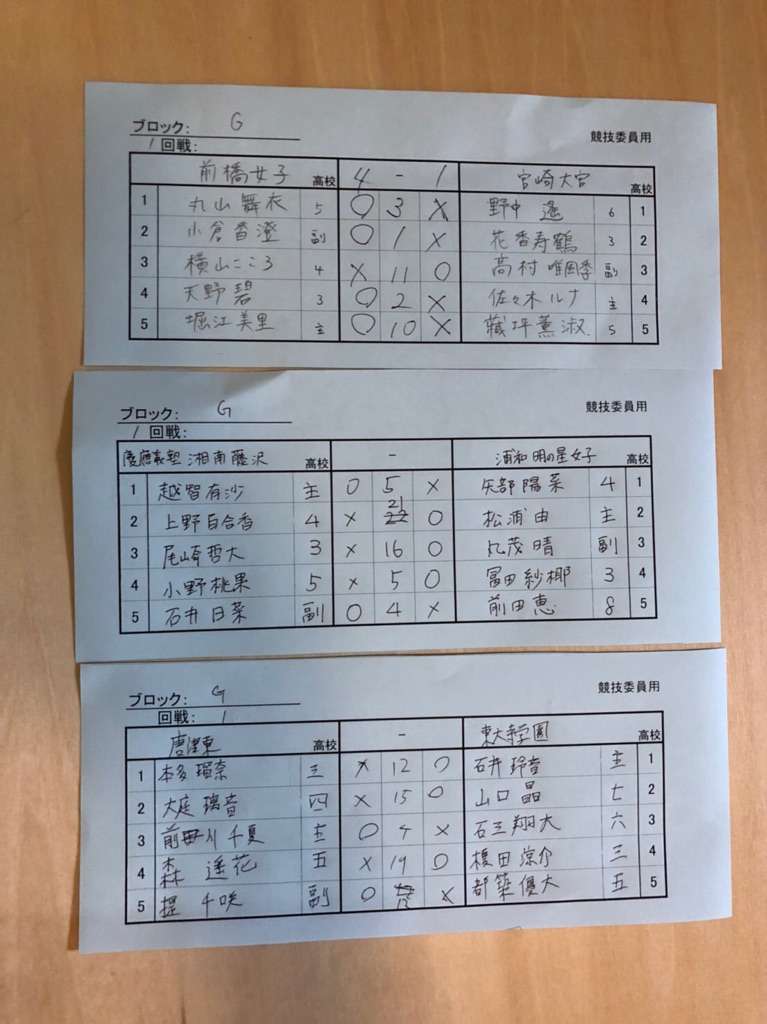 ブロック: G 競技委員用
1 回戦:
前橋女子 高校 4 - 1 宮崎大宮 高校
1 丸山舞衣 5 ○ 3 × 野中 遥 6 1
2 小倉香澄 副 ○ 1 × 花香寿鶴 3 2
3 横山こころ 4 × 11 ○ 髙村 唯 副 3
4 天野碧 3 ○ 2 × 佐々木ルナ 主 4
5 堀江美里 主 ○ 10 × 藏坪薫淑 5 5
ブロック: G 競技委員用
1 回戦:
慶應義塾湘南藤沢 高校 - 浦和明の星女子 高校
1 越智有沙 主 ○ 5 × 矢部陽菜 4 1
2 上野百合香 4 × 21 ○ 松浦由 主 2
3 尾崎哲大 3 × 16 ○ 丸茂晴 副 3
4 小野桃果 5 × 5 ○ 冨田紗椰 3 4
5 石井日菜 副 ○ 4 × 前田恵 8 5
ブロック: G 競技委員用
回戦: 1
唐津東 高校 - 東大寺学園 高校
1 本多瑠奈 三 × 12 ○ 石井玲音 主 1
2 大庭璃音 四 × 15 ○ 山口晶 七 2
3 前川千夏 主 ○ 4 × 石三翔大 六 3
4 森遥花 五 × 19 ○ 榎田涼介 三 4
5 堤千咲 副 ○ 13 × 都築優大 五 5